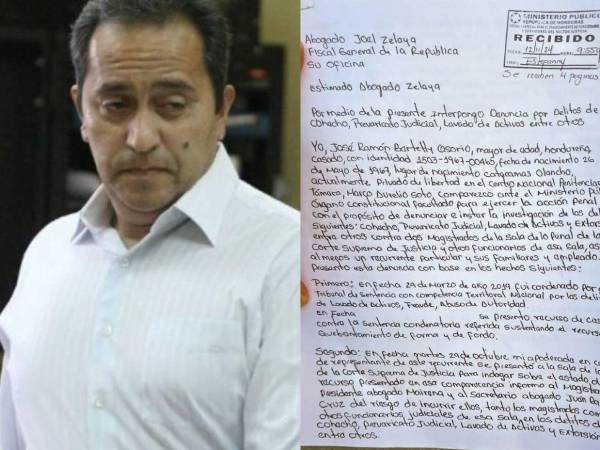 MINISTERIO PÚBLICO
REPUBLICA DE HONDURAS
RECIBIDO
FECHA: 12/11/24 9:55
Se reciben 4 paginas
Abogado Joel Zelaya
Fiscal General de la Republica
Su Oficina
Estimado Abogado Zelaya
Por medio de la presente Interpongo Denuncia por Delitos de
Cohecho, Prevaricato Judicial, Lavado de Activos entre otros
Yo, José Ramón Bertetty Osorio, mayor de edad, hondureño
casado, con identidad 1503-1967-00465, fecha de nacimiento 26
de Mayo de 1967, lugar de nacimiento catacamas Olancho,
actualmente privado de libertad en el Centro Nacional Penitenciar
Támara, Marco Aurelio Soto, comparezco ante el Ministerio Púb
Órgano constitucional facultado para ejercer la acción penal
con el propósito de denunciar e instar la investigación de los de
siguientes: cohecho, Prevaricato Judicial, Lavado de Activos y Extors
entre otros contra dos Magistrados de la sala de lo Penal de la
Corte Suprema de Justicia y otros funcionarios de esa sala, así
al menos un recurrente particular y sus familiares y empleado.
Presento esta denuncia con base en los hechos siguientes:
Primero: En fecha 29 de Marzo de año 2019 fui condenado por
Tribunal de Sentencia con competencia Territorial Nacional por los deli
de Lavado de Activos, Fraude, Abuso de Autoridad
en Fecha se presento recurso de cas
contra la sentencia condenatoria referida sustentando el recurso
Quebrantamiento de forma y de fondo.
Segundo: En fecha martes 29 de octubre mi apoderada en c
de representante de este recurrente se presentó a la sala de lo
de la corte Suprema de Justicia para indagar sobre el estado d
recurso presentado en esa comparecencia informo al Magist
Presidente abogado Mairena y al secretario abogado Juan
Cruz del riesgo de incurrir ellos, tanto los magistrados com
otros funcionarios judiciales de esa sala, en los delitos d
cohecho, Prevaricato Judicial, Lavado de Activos y Extorsión
entre otros.